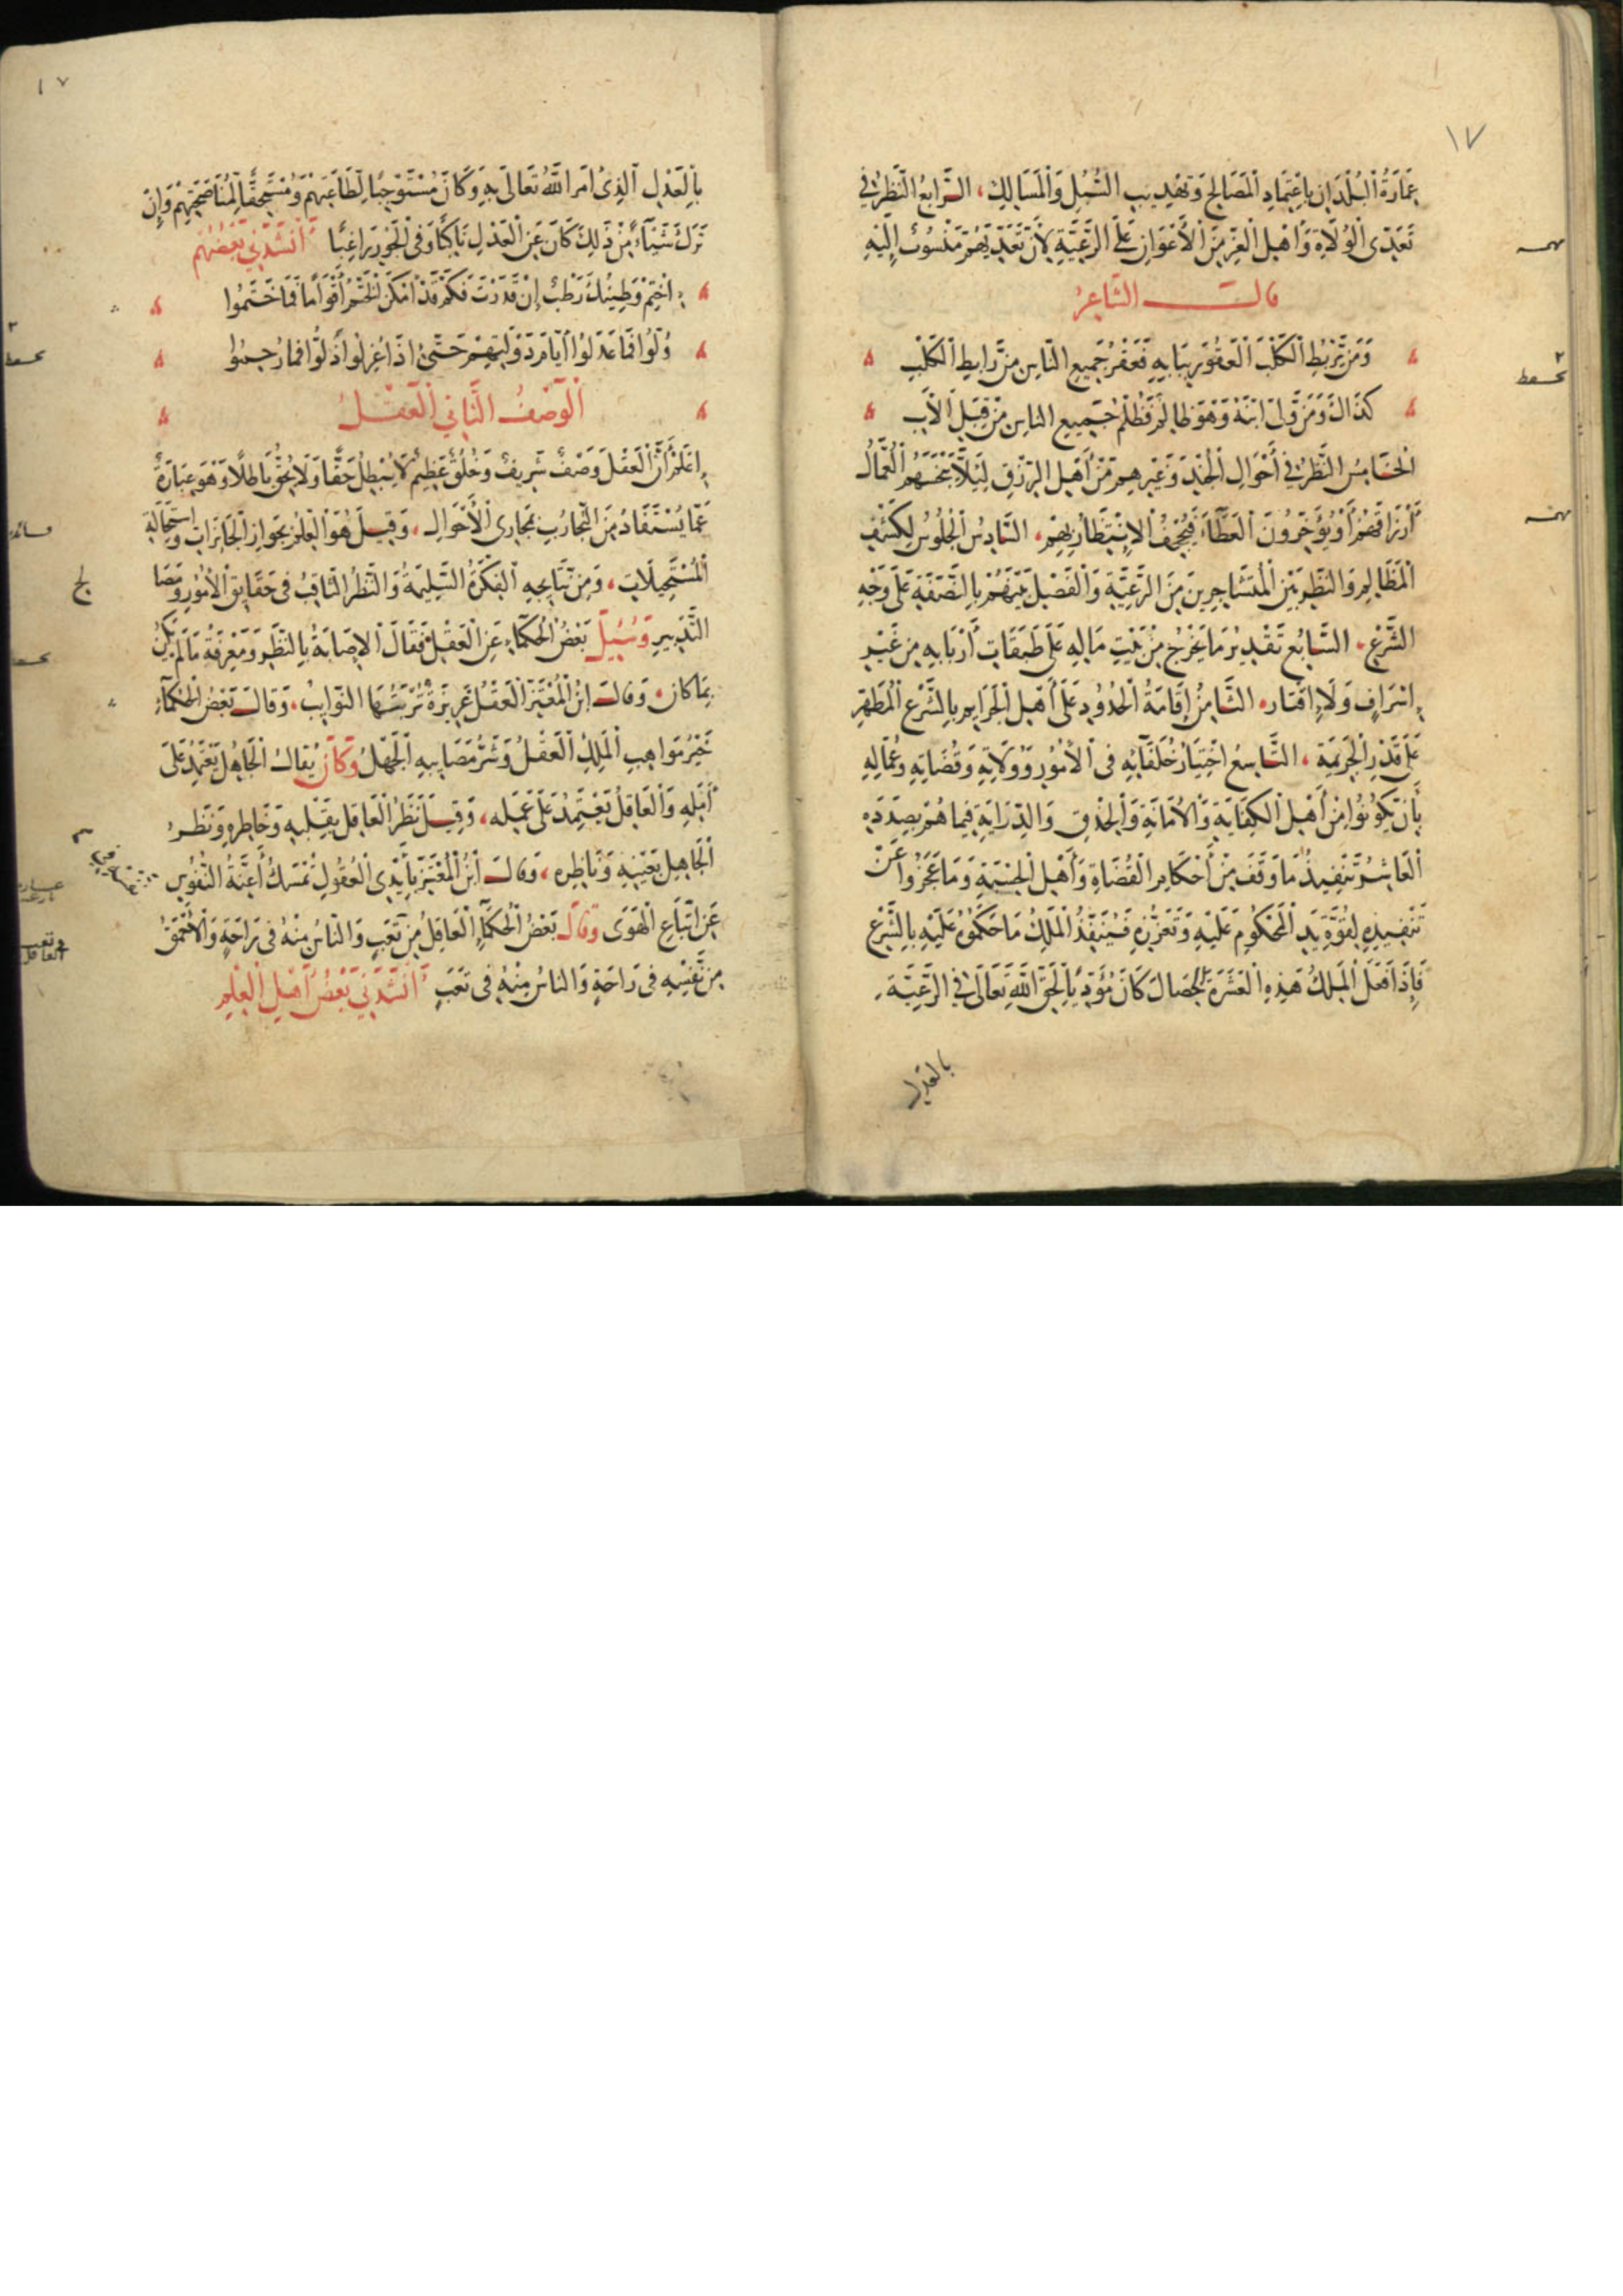 ١٧
عِمَارَةُ الْبُلْدَانِ بِاعْتِمَادِ الْمَصَالِحِ وَتَهْذِيبِ السُّبُلِ وَالْمَسَالِكِ، الرَّابِعُ النَّظَرُ فِي
تَعَدِّى الْوُلَاةِ وَأَهْلِ الْعِزِّ مِنَ الْأَعْوَانِ عَلَى الرَّعِيَّةِ لِأَنَّ تَعَدِّيَهُمْ مَنْسُوبٌ إِلَيْهِ
قَالَ الشَّاعِرُ
وَمَنْ يَرْبُطِ الْكَلْبَ الْعَقُورَ بِبَابِهِ فَعَقْرُ جَمِيعِ النَّاسِ مِنْ رَابِطِ الْكَلْبِ
كَذَاكَ وَمَنْ وَلَّى ابْنَهُ وَهْوَ ظَالِمٌ فَظُلْمُ جَمِيعِ النَّاسِ مِنْ قِبَلِ الْأَبِ
الْخَامِسُ النَّظَرُ فِي أَحْوَالِ الْجُنْدِ وَغَيْرِهِمْ مِنْ أَهْلِ الرِّزْقِ لِيَلَّا يَبْخَسَهُمُ الْعُمَّالُ
أَرْزَاقَهُمْ أَوْ يُؤَخِّرُونَ الْعَطَاءَ فَيُجْحِفُ الْاِنْتِظَارُ بِهِمْ، السَّادِسُ الْجُلُوسُ لِكَشْفِ
الْمَظَالِمِ وَالنَّظَرِ بَيْنَ الْمُتَشَاجِرِينَ مِنَ الرَّعِيَّةِ وَالْفَصْلِ بَيْنَهُمْ بِالنَّصَفَةِ عَلَى وَجْهِ
الشَّرْعِ، السَّابِعُ تَقْدِيرُ مَا يَخْرُجُ مِنْ بَيْتِ مَالِهِ عَلَى طَبَقَاتِ أَرْبَابِهِ مِنْ غَيْرِ
إِسْرَافٍ وَلَا إِقْتَارٍ، الثَّامِنُ إِقَامَةُ الْحُدُودِ عَلَى أَهْلِ الْجَرَايِمِ بِالشَّرْعِ الْمُطَهَّرِ
عَلَى قَدْرِ الْجَرِيمَةِ، التَّاسِعُ اخْتِيَارُ خُلَفَائِهِ فِى الْأُمُورِ وَوُلَاتِهِ وَقُضَاتِهِ وَعُمَّالِهِ
بِأَنْ يَكُونُوا مِنْ أَهْلِ الْكِفَايَةِ وَالْأَمَانَةِ وَالْحِذْقِ وَالدِّرَايَةِ فِيمَا هُمْ بِصَدَدِهِ
الْعَاشِرُ تَنْفِيذُ مَا وَقَفَ مِنْ أَحْكَامِ الْقُضَاةِ وَأَهْلِ الْحِسْبَةِ وَمَا عَجَزُوا عَنْ
تَنْفِيذِهِ لِقُوَّةِ يَدِ الْمَحْكُومِ عَلَيْهِ وَتَعَزُّزِهِ فَيُنَفِّذُ الْمَلِكُ مَا حَكَمُوهُ عَلَيْهِ بِالشَّرْعِ
فَإِذَا فَعَلَ الْمَلِكُ هَذِهِ الْعَشَرَةَ الْخِصَالَ كَانَ مُؤَدِّيًا لِحَقِّ اللَّهِ تَعَالَى فِي الرَّعِيَّةِ
بالعدل
١٧
بِالْعَدْلِ الَّذِى أَمَرَ اللَّهُ تَعَالَى بِهِ وَكَانَ مُسْتَوْجِبًا لِطَاعَتِهِمْ وَمُسْتَحِقًّا لِمُنَاصَحَتِهِمْ وَإِنْ
تَرَكَ شَيْئًا مِنْ ذَلِكَ كَانَ عَنِ الْعَدْلِ نَاكِبًا وَفِى الْجَوْرِ رَاغِبًا أَنْشَدَنِي بَعْضُهُمْ
اخْتِمْ وَطِينُكَ رَطْبٌ إِنْ قَدَرْتَ فَكَمْ قَدْ أَمْكَنَ الْخَتْمُ أَقْوَامًا فَمَا خَتَمُوا
وُلُّوا فَمَا عَدَلُوا أَيَّامَ دَوْلَتِهِمْ حَتَّى إِذَا عُزِلُوا ذَلُّوا فَمَا رُحِمُوا
الْوَصْفُ الثَّانِي الْعَقْلُ
اعْلَمْ أَنَّ الْعَقْلَ وَصْفٌ شَرِيفٌ وَخُلُقٌ عَظِيمٌ لَا يُبْطِلُ حَقًّا وَلَا يُحِقُّ بَاطِلًا وَهُوَ عِبَارَةٌ
عَمَّا يُسْتَفَادُ مِنَ التَّجَارُبِ بِمَجَارِى الْأَحْوَالِ، وَقِيلَ هُوَ الْعِلْمُ بِجَوَازِ الْجَائِزَاتِ وَاسْتِحَالَةِ
الْمُسْتَحِيلَاتِ، وَمِنْ نَتَايِجِهِ الْفِكْرَةُ السَّلِيمَةُ وَالنَّظَرُ الثَّاقِبُ فِى حَقَايِقِ الْأُمُورِ وَمَصَا
التَّدْبِيرِ وَسُئِلَ بَعْضُ الْحُكَمَاءِ عَنِ الْعَقْلِ فَقَالَ الْإِصَابَةُ بِالنَّظَرِ وَمَعْرِفَةُ مَا لَمْ يَكُنْ
بِمَا كَانَ، وَقَالَ ابْنُ الْمُعْتَزِّ الْعَقْلُ غَرِيزَةٌ تُرَبِّيهَا النَّوَايِبُ، وَقَالَ بَعْضُ الْحُكَمَاءِ
خَيْرُ مَوَاهِبِ الْمَلِكِ الْعَقْلُ وَشَرُّ مَصَايِبِهِ الْجَهْلُ وَكَانَ يُقَالُ الْجَاهِلُ يَعْتَمِدُ عَلَى
أَمَلِهِ وَالْعَاقِلُ يَعْتَمِدُ عَلَى عَمَلِهِ، وَقِيلَ نَظَرُ الْعَاقِلِ بِقَلْبِهِ وَخَاطِرِهِ وَنَظَرُ
الْجَاهِلِ بِعَيْنِهِ وَنَاظِرِهِ، وَقَالَ ابْنُ الْمُعْتَزِّ بِأَيْدِى الْعُقُولِ تُمْسَكُ أَعِنَّةُ النُّفُوسِ
عَنِ اتِّبَاعِ الْهَوَى وَقَالَ بَعْضُ الْحُكَمَاءِ الْعَاقِلُ مِنْ تَعَبٍ وَالنَّاسُ مِنْهُ فِى رَاحَةٍ وَالْأَحْمَقُ
مِنْ نَفْسِهِ فِى رَاحَةٍ وَالنَّاسُ مِنْهُ فِى تَعَبٍ أَنْشَدَنِي بَعْضُ أَهْلِ الْعِلْمِ
لح